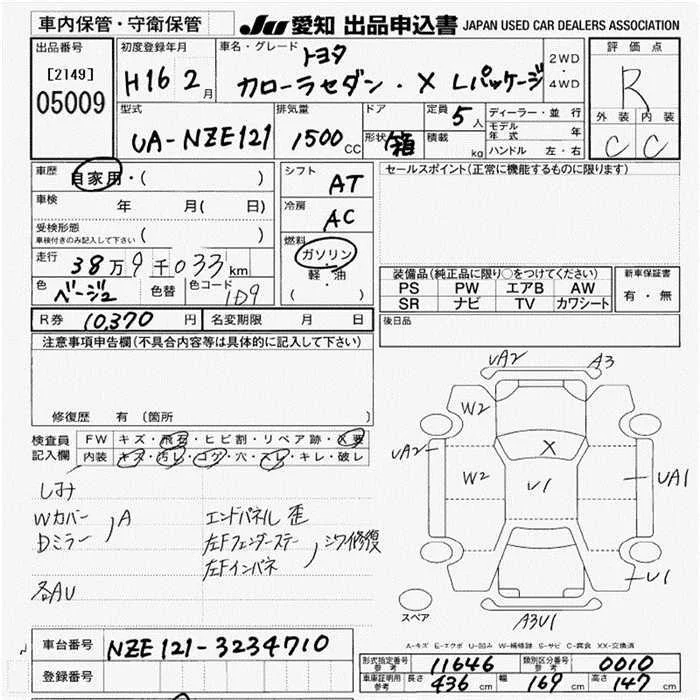 車内保管・守衛保管 JU 愛知 出品申込書 JAPAN USED CAR DEALERS ASSOCIATION
出品番号
[2149]
05009
初度登録年月
H16 2月
車名・グレード
トヨタ
カローラセダン・X Lパッケージ
2WD
・
4WD
評価点
R
外装 内装
C C
型式
UA-NZE121
排気量
1500 CC
ドア
形状 箱
定員 5人
積載 kg
ディーラー・並行
モデル年式 年
ハンドル 左・右
車歴 自家用・( )
車検 年 月( 日)
受検形態
車検付きのみ記入して下さい ( )
走行 38万9千033km
色 ベージュ 色替 色コード 1D9
シフト
AT
冷房
AC
燃料
ガソリン
・
軽・油
・
( )
セールスポイント(正常に機能するものに限ります)
装備品(純正品に限り○をつけてください)
PS PW エアB AW
SR ナビ TV カワシート
新車保証書
有・無
R券 10,370円 名変期限 月 日
後日品
注意事項申告欄(不具合内容等は具体的に記入して下さい)
修復歴 有 (箇所 )
検査員記入欄
FW キズ・飛石・ヒビ割・リペア跡・X要
内装 キズ・汚レ・コゲ・穴・スレ・キレ・破レ
しみ
Wカバー
Dミラー
A
各AU
エンドパネル 歪
左Fフェンダーステー
左Fインパネ
シワ修復
UA2 A3
W2
UA2
X
W2 U1 UA1
U1
スペア
A3U1
A-キズ E-エクボ U-凹み W-補修跡 S-サビ C-腐食 XX-交換済
車台番号 NZE121-3234710
登録番号
形式指定番号 参考 11646 類別区分番号 参考 0010
車庫証明用 参考 長さ 436 cm 幅 169 cm 高さ 147 cm